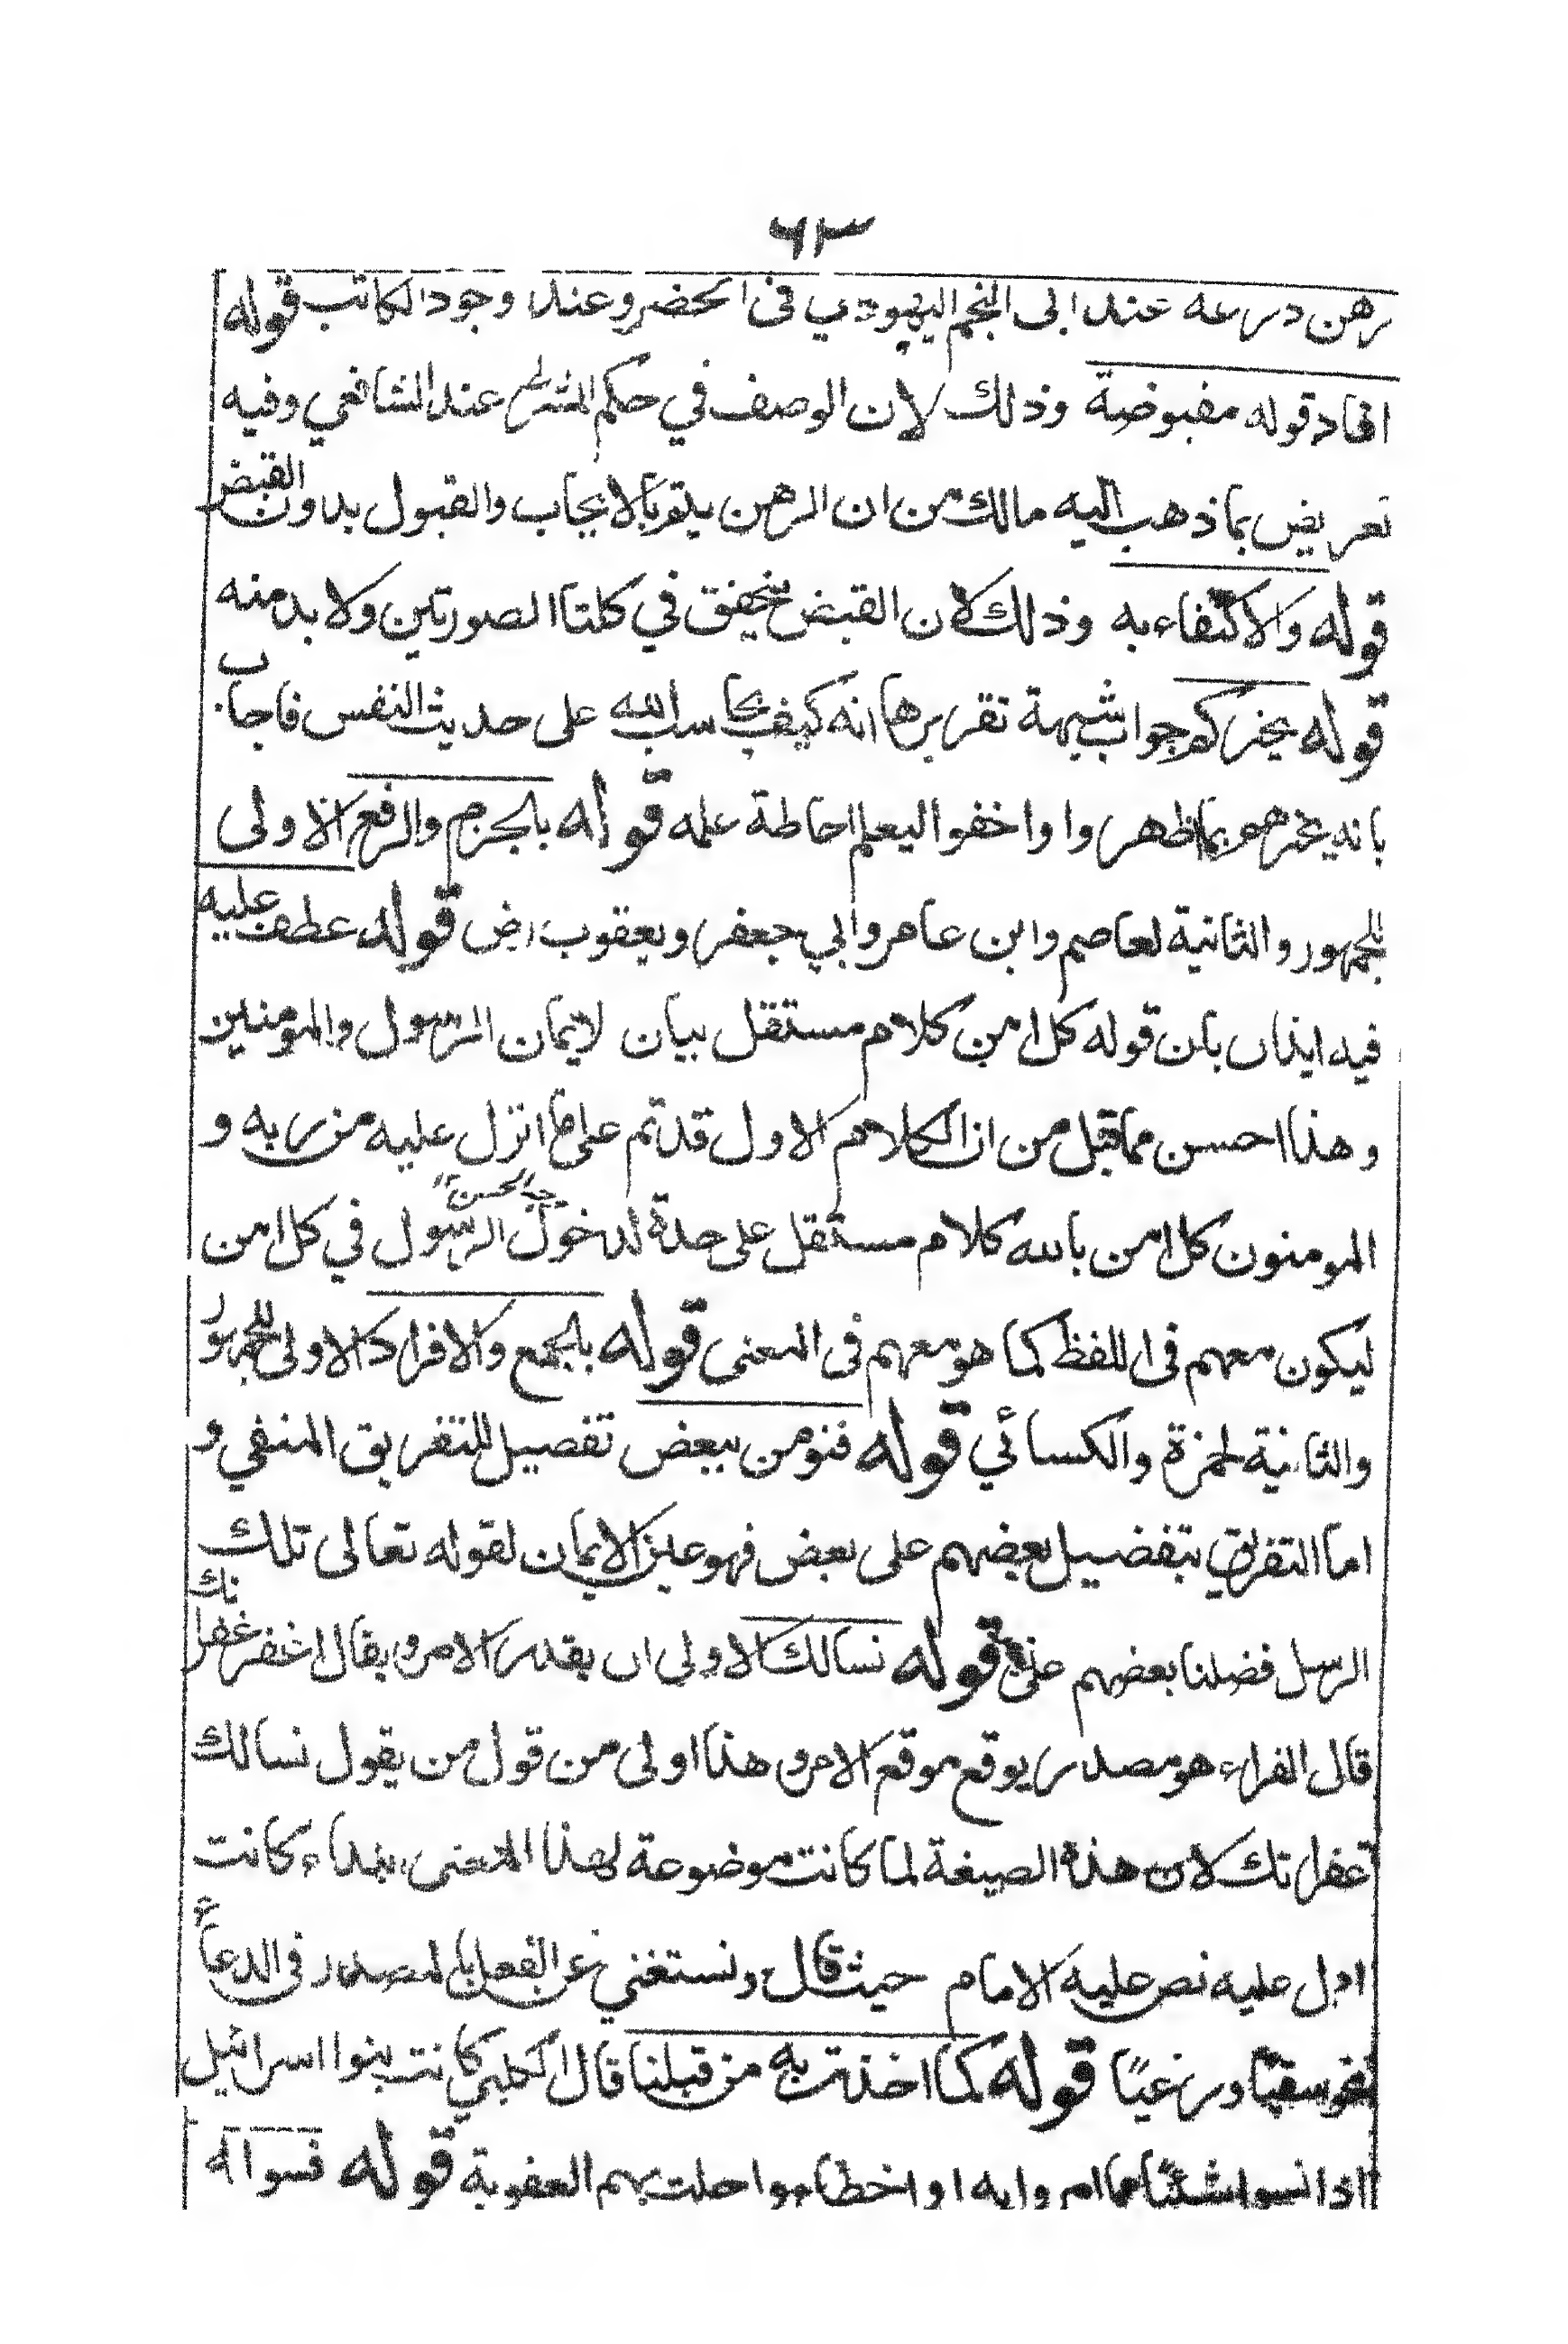 ٦٣
رهن درعه عند ابى النجم اليهودي فى الحضر وعند وجود الكاتب قوله
افاد قوله مقبوضة وذلك لان الوصف في حكم الشرط عند الشافعي وفيه
تعريض بما ذهب اليه مالك من ان الرهن يلزم بالايجاب والقبول بدون القبض
قوله والاكتفاء به وذلك لان القبض يتحقق في كلتا الصورتين ولا بد منه
قوله يخبركم جواب شبهة تقريرها انه كيف يحاسب الله على حديث النفس فاجاب
بانه يخبرهم بما ظهروا واخفوا ليعلم احاطة علمه قوله بالجزم والرفع الاولى
للجمهور والثانية لعاصم وابن عامر وابي جعفر ويعقوب رض قوله عطف عليه
فيه ايذان بان قوله كل امن كلام مستقل بيان لايمان الرسول والمومنين
وهذا احسن مما قيل من ان الكلام الاول قد تم على ما انزل عليه من ربه و
المومنون كل امن بالله كلام مستقل على حدة لدخول الرسول في كل امن
وجه الحسن ١٢
ليكون معهم فى اللفظ كما هو معهم فى المعنى قوله بالجمع والافراد الاولى للجمهور
والثانية لحمزة والكسائي قوله فنومن ببعض تفصيل للتفريق المنفي و
اما التفريق بتفضيل بعضهم على بعض فهو عين الايمان لقوله تعالى تلك
الرسل فضلنا بعضهم على بعض قوله نسالك الاولى ان يقدر الامر ويقال اغفر غفرانك
قال الفراء هو مصدر يوقع موقع الامر وهذا اولى من قول من يقول نسالك
غفرانك لان هذه الصيغة لما كانت موضوعة لهذا المعنى ابتداء كانت
ادل عليه نص عليه الامام حيث قال ونستغني عن الفعل بالمصدر فى الدعاء
نحو سقيًا ورعيًا قوله كما اخذت به من قبلنا قال الكلبي كانت بنوا اسرائيل
اذا نسوا شيئًا مما امروا به او اخطاءوا حلت بهم العقوبة قوله فسواله